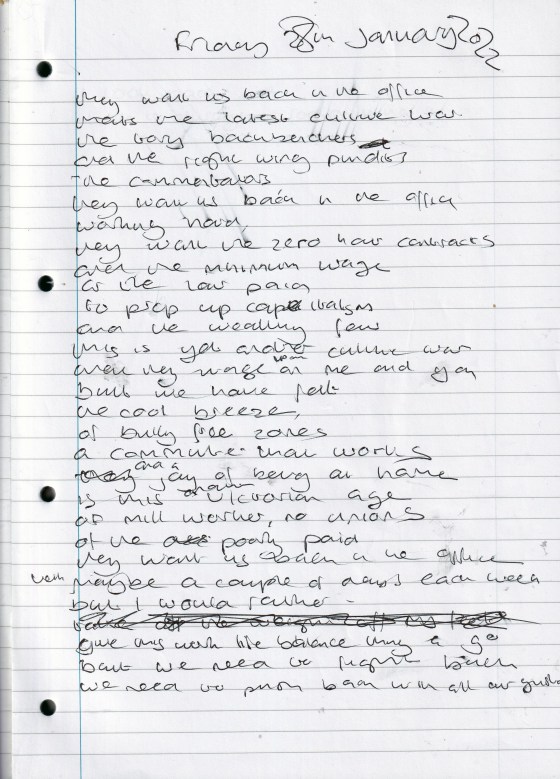 Friday 28th January 2022
they want us back in the office
that's the latest culture war
the tory backbenchers
and the right wing pundits
the commentators
they want us back in the office
working hard
they want the zero hour contracts
and the minimum wage
or the low paid
to prop up capitalism
and the wealthy few
this is yet another culture war
that they wage upon me and you
but we have felt
the cool breeze,
of bully free zones
a commute that works
and a joy of being at home
is this Victorian age
of mill worker, no unions
of the poorly paid
they want us back in the office
yeah maybe a couple of days each week
but I would rather
give this work life balance thing a go
but we need to fight back
we need to push back with all our